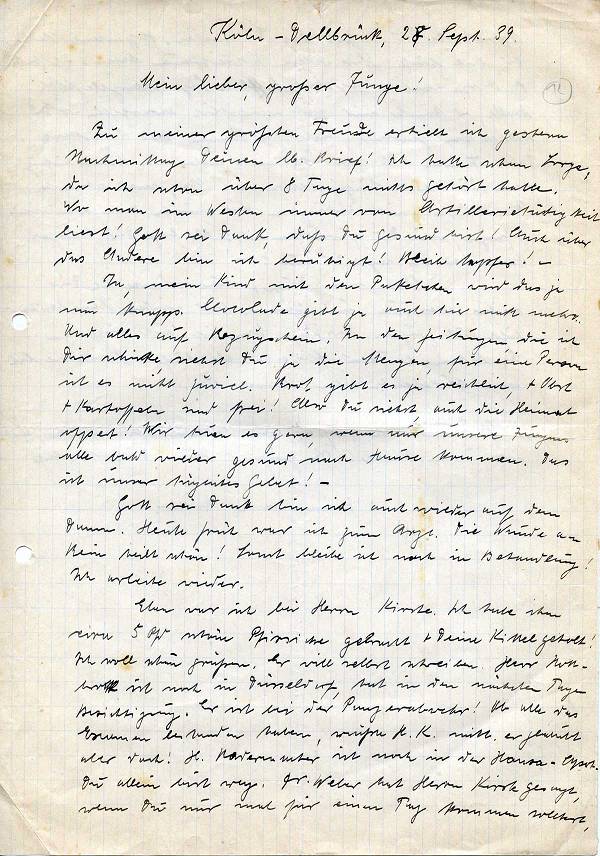 Köln - Dellbrück, 27. Sept. 39.
12
Mein lieber, großer Junge!
Zu meiner größten Freude erhielt ich gestern
Nachmittag Deinen lb. Brief! Ich hatte schon Sorge,
da ich schon über 8 Tage nichts gehört hatte.
Wo man im Westen immer von Artillerietätigkeit
liest! Gott sei Dank, daß Du gesund bist! Auch über
das Andere bin ich beruhigt! Bleib tapfer! -
Ja, mein Kind mit den Paketchen wird das ja
nur knapp. Chocolade gibt ja auch hier nicht mehr.
Und alles auf Bezugschein. In den Zeitungen die ich
Dir schicke siehst Du ja die Mengen, für eine Person
ist es nicht zuviel. Brot gibt es ja reichlich, + Obst
+ Kartoffeln sind frei! Also Du siehst auch die Heimat
opfert! Wir tuen es gern, wenn nur unsere Jungens
alle bald wieder gesund nach Hause kommen. Das
ist unser tägliches Gebet! -
Gott sei Dank bin ich auch wieder auf dem
Damm. Heute früh war ich zum Arzt. Die Wunde am
Bein heilt schön! Sonst bleibe ich noch in Behandlung!
Ich arbeite wieder.
Eben war ich bei Herrn Kirste. Ich habe ihm
circa 5 Pfd schöne Pfirsiche gebracht + Deine Kittel geholt!
Ich soll schön grüßen. Er will selbst schreiben. Herr
ist noch in Düsseldorf, hat in den nächsten Tagen
Besichtigung. Er ist bei der Panzerabwehr! Ob alle das
Examen bestanden haben, wußte H. K. nicht. er glaubt
aber doch! H. ist noch in der Hansa-Apoth.
Du allein bist weg. Dr. Weber hat Herrn Kirste gesagt,
wenn Du nur mal für einen Tag kommen solltest,